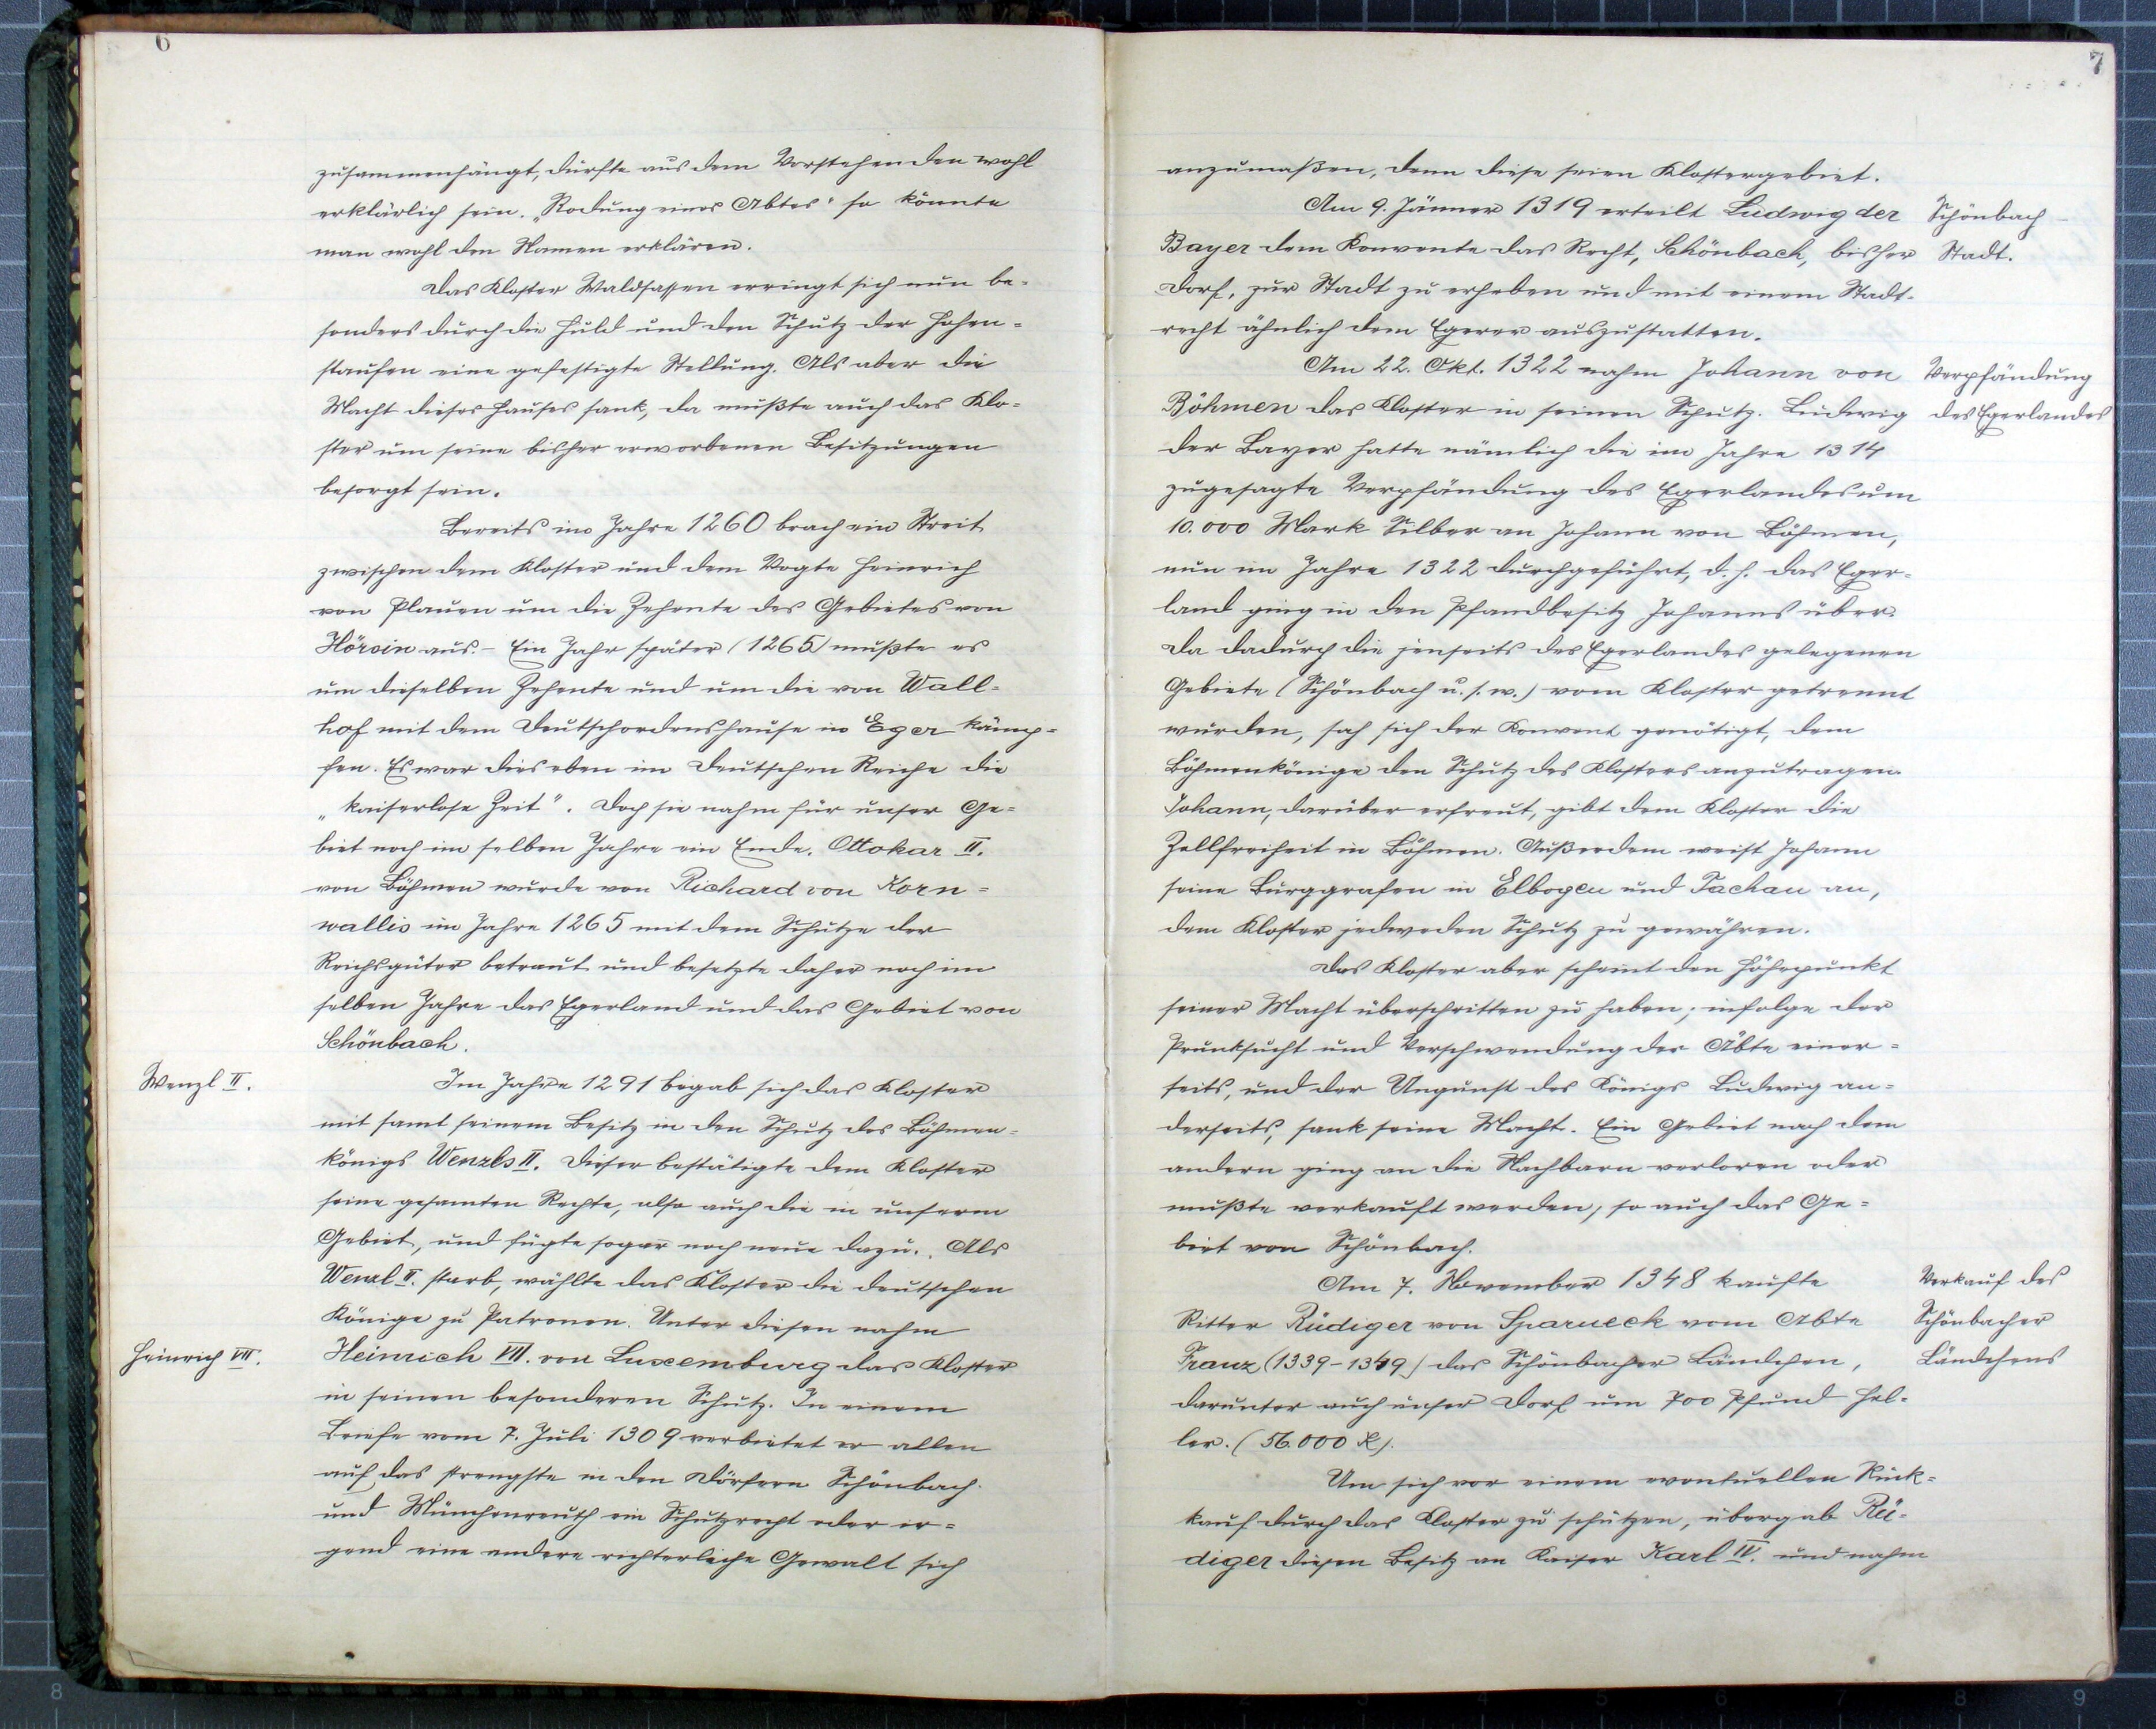 6
zusammenhängt, dürfte aus dem Vorstehenden wohl
erklärlich sein. „Rodung eines Abtes" so könnte
man wohl den Namen erklären.
Das Kloster Waldsassen erringt sich nun be-
sonders durch die Huld und den Schutz der Hohen-
staufen eine gefestigte Stellung. Als aber die
Macht dieses Hauses sank, da mußte auch das Klo-
ster um seine bisher erworbenen Besitzungen
besorgt sein.
Bereits im Jahre 1260 brach ein Streit
zwischen dem Kloster und dem Vogte Heinrich
von Plauen um die Zehente des Gebietes von
Hörsin aus. - Ein Jahr später (1265) mußte es
um dieselben Zehente und um die von Wall-
hof mit dem Deutschordenshause in Eger kämp-
fen. Es war dies eben im Deutschen Reiche die
„kaiserlose Zeit". Doch sie nahm für unser Ge-
biet noch im selben Jahre ein Ende. Ottokar II.
von Böhmen wurde von Richard von Korn-
wallis im Jahre 1265 mit dem Schutze der
Reichsgüter betraut und besetzte daher noch im
selben Jahre das Egerland und das Gebiet von
Schönbach.
Wenzl II.
Im Jahre 1291 begab sich das Kloster
mit samt seinem Besitz in den Schutz des Böhmen-
königs Wenzls II. Dieser bestätigte dem Kloster
seine gesamten Rechte, also auch die in unserem
Gebiet, und fügte sogar noch neue dazu. Als
Wenzl II. starb, wählte das Kloster die deutschen
Könige zu Patronen. Unter diesen nahm
Heinrich VII.
Heinrich VII. von Luxemburg das Kloster
in seinen besonderen Schutz. In einem
Briefe vom 7. Juli 1309 verbietet er allen
auf das strengste in den Dörfern Schönbach
und Münchenreuth ein Schutzrecht oder ir-
gend eine andere richterliche Gewalt sich
7
anzumaßen, denn diese seien Klostergebiet.
Am 9. Jänner 1319 erteilt Ludwig der
Schönbach
Bayer dem Konvente das Recht, Schönbach, bisher
Stadt.
Dorf, zur Stadt zu erheben und mit einem Stadt-
recht ähnlich dem Egerer auszustatten.
Am 22. Okt. 1322 nahm Johann von
Verpfändung
Böhmen das Kloster in seinen Schutz. Ludwig
des Egerlandes
der Bayer hatte nämlich die im Jahre 1314
zugesagte Verpfändung des Egerlandes um
10.000 Mark Silber an Johann von Böhmen,
nun im Jahre 1322 durchgeführt, d. h. das Eger-
land ging in den Pfandbesitz Johanns über.
Da dadurch die jenseits des Egerlandes gelegenen
Gebiete (Schönbach u. s. w.) vom Kloster getrennt
wurden, sah sich der Konvent genötigt, dem
Böhmenkönige den Schutz des Klosters anzutragen.
Johann, darüber erfreut, gibt dem Kloster die
Zollfreiheit in Böhmen. Außerdem weist Johann
seine Burggrafen in Elbogen und Tachau an,
dem Kloster jedweden Schutz zu gewähren.
Das Kloster aber scheint den Höhepunkt
seiner Macht überschritten zu haben; infolge der
Prunksucht und Verschwendung der Äbte einer-
seits, und der Ungunst des Königs Ludwig an-
derseits, sank seine Macht. Ein Gebiet nach dem
andern ging an die Nachbarn verloren oder
mußte verkauft werden, so auch das Ge-
biet von Schönbach.
Am 7. November 1348 kaufte
Verkauf des
Ritter Rüdiger von Sparneck vom Abte
Schönbacher
Franz (1339-1349) das Schönbacher Ländchen,
Ländchens
darunter auch unser Dorf um 700 Pfund Hel-
ler. (56.000 K).
Um sich vor einem eventuellen Rück-
kauf durch das Kloster zu schützen, übergab Rü-
diger diesen Besitz an Kaiser Karl IV. und nahm
8
1
2
3
4
5
6
7
8
9